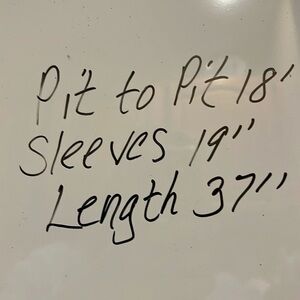 Pit to Pit 18"
Sleeves 19"
Length 37"